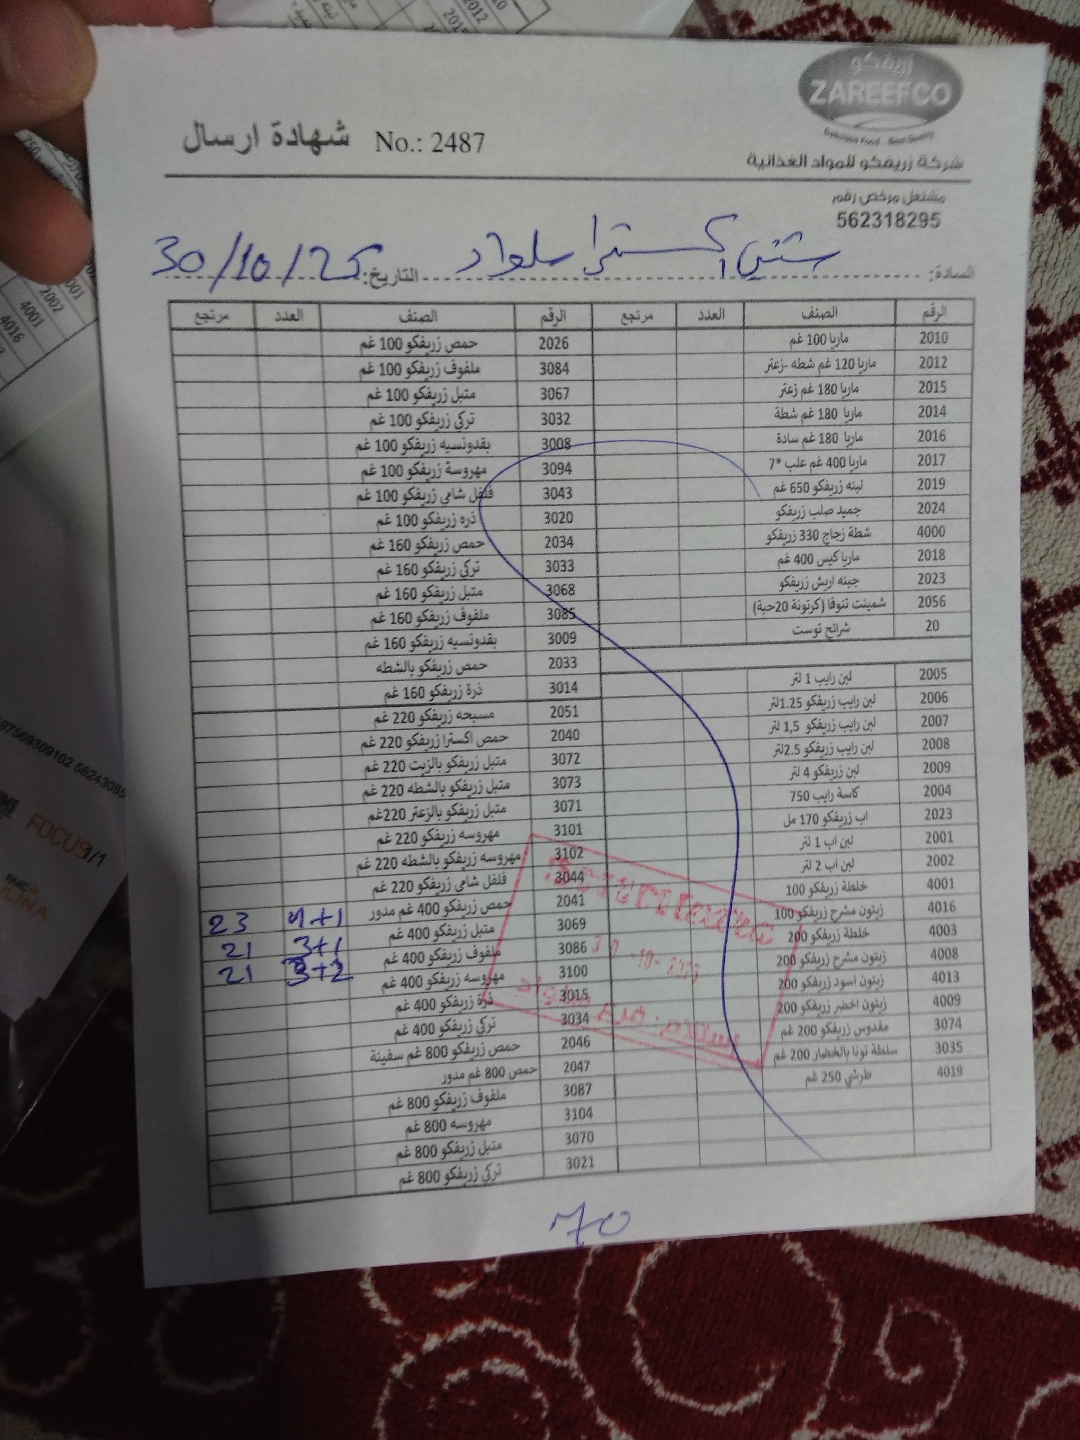 زريفكو
ZAREEFCO
Delicious Food - Best Quality
شركة زريفكو للمواد الغذائية
شهادة ارسال No.: 2487
مشتغل مرخص رقم
562318295
السادة: سلواد التاريخ: 30/10/25
الرقم الصنف العدد مرتجع الرقم الصنف العدد مرتجع
2010 ماريا 100 غم 2026 حمص زريفكو 100 غم
2012 ماريا 120 غم شطه -زعتر 3084 ملفوف زريفكو 100 غم
2015 ماريا 180 غم زعتر 3067 متبل زريفكو 100 غم
2014 ماريا 180 غم شطة 3032 تركي زريفكو 100 غم
2016 ماريا 180 غم سادة 3008 بقدونسيه زريفكو 100 غم
2017 ماريا 400 غم علب *7 3094 مهروسة زريفكو 100 غم
2019 لبنه زريفكو 650 غم 3043 فلفل شامي زريفكو 100 غم
2024 جميد صلب زريفكو 3020 ذره زريفكو 100 غم
4000 شطة زجاج 330 زريفكو 2034 حمص زريفكو 160 غم
2018 ماريا كيس 400 غم 3033 تركي زريفكو 160 غم
2023 جبنه اربش زريفكو 3068 متبل زريفكو 160 غم
2056 شمينت تنوفا (كرتونة 20حبة) 3085 ملفوف زريفكو 160 غم
20 شرائح توست 3009 بقدونسيه زريفكو 160 غم
2033 حمص زريفكو بالشطه
2005 لبن رايب 1 لتر 3014 ذرة زريفكو 160 غم
2006 لبن رايب زريفكو 1.25لتر 2051 مسبحه زريفكو 220 غم
2007 لبن رايب زريفكو 1,5 لتر 2040 حمص اكسترا زريفكو 220 غم
2008 لبن رايب زريفكو 2.5لتر 3072 متبل زريفكو بالزيت 220 غم
2009 لبن زريفكو 4 لتر 3073 متبل زريفكو بالشطه 220 غم
2004 كاسة رايب 750 3071 متبل زريفكو بالزعتر 220غم
2023 اب زريفكو 170 مل 3101 مهروسه زريفكو 220 غم
2001 لبن اب 1 لتر 3102 مهروسه زريفكو بالشطه 220 غم
2002 لبن اب 2 لتر 3044 فلفل شامي زريفكو 220 غم
4001 خلطة زريفكو 100 2041 حمص زريفكو 400 غم مدور 4+1 23
4016 زيتون مشرح زريفكو 100 3069 متبل زريفكو 400 غم 3+1 21
4003 خلطة زريفكو 200 3086 ملفوف زريفكو 400 غم 3+2 21
4008 زيتون مشرح زريفكو 200 3100 مهروسه زريفكو 400 غم
4013 زيتون اسود زريفكو 200 3015 ذرة زريفكو 400 غم
4009 زيتون اخضر زريفكو 200 3034 تركي زريفكو 400 غم
3074 مقدوس زريفكو 200 غم 2046 حمص زريفكو 800 غم سفينة
3035 سلطة تونا بالخضار 200 غم 2047 حمص 800 غم مدور
4019 طرشي 250 غم 3087 ملفوف زريفكو 800 غم
3104 مهروسه 800 غم
3070 متبل زريفكو 800 غم
3021 تركي زريفكو 800 غم
70